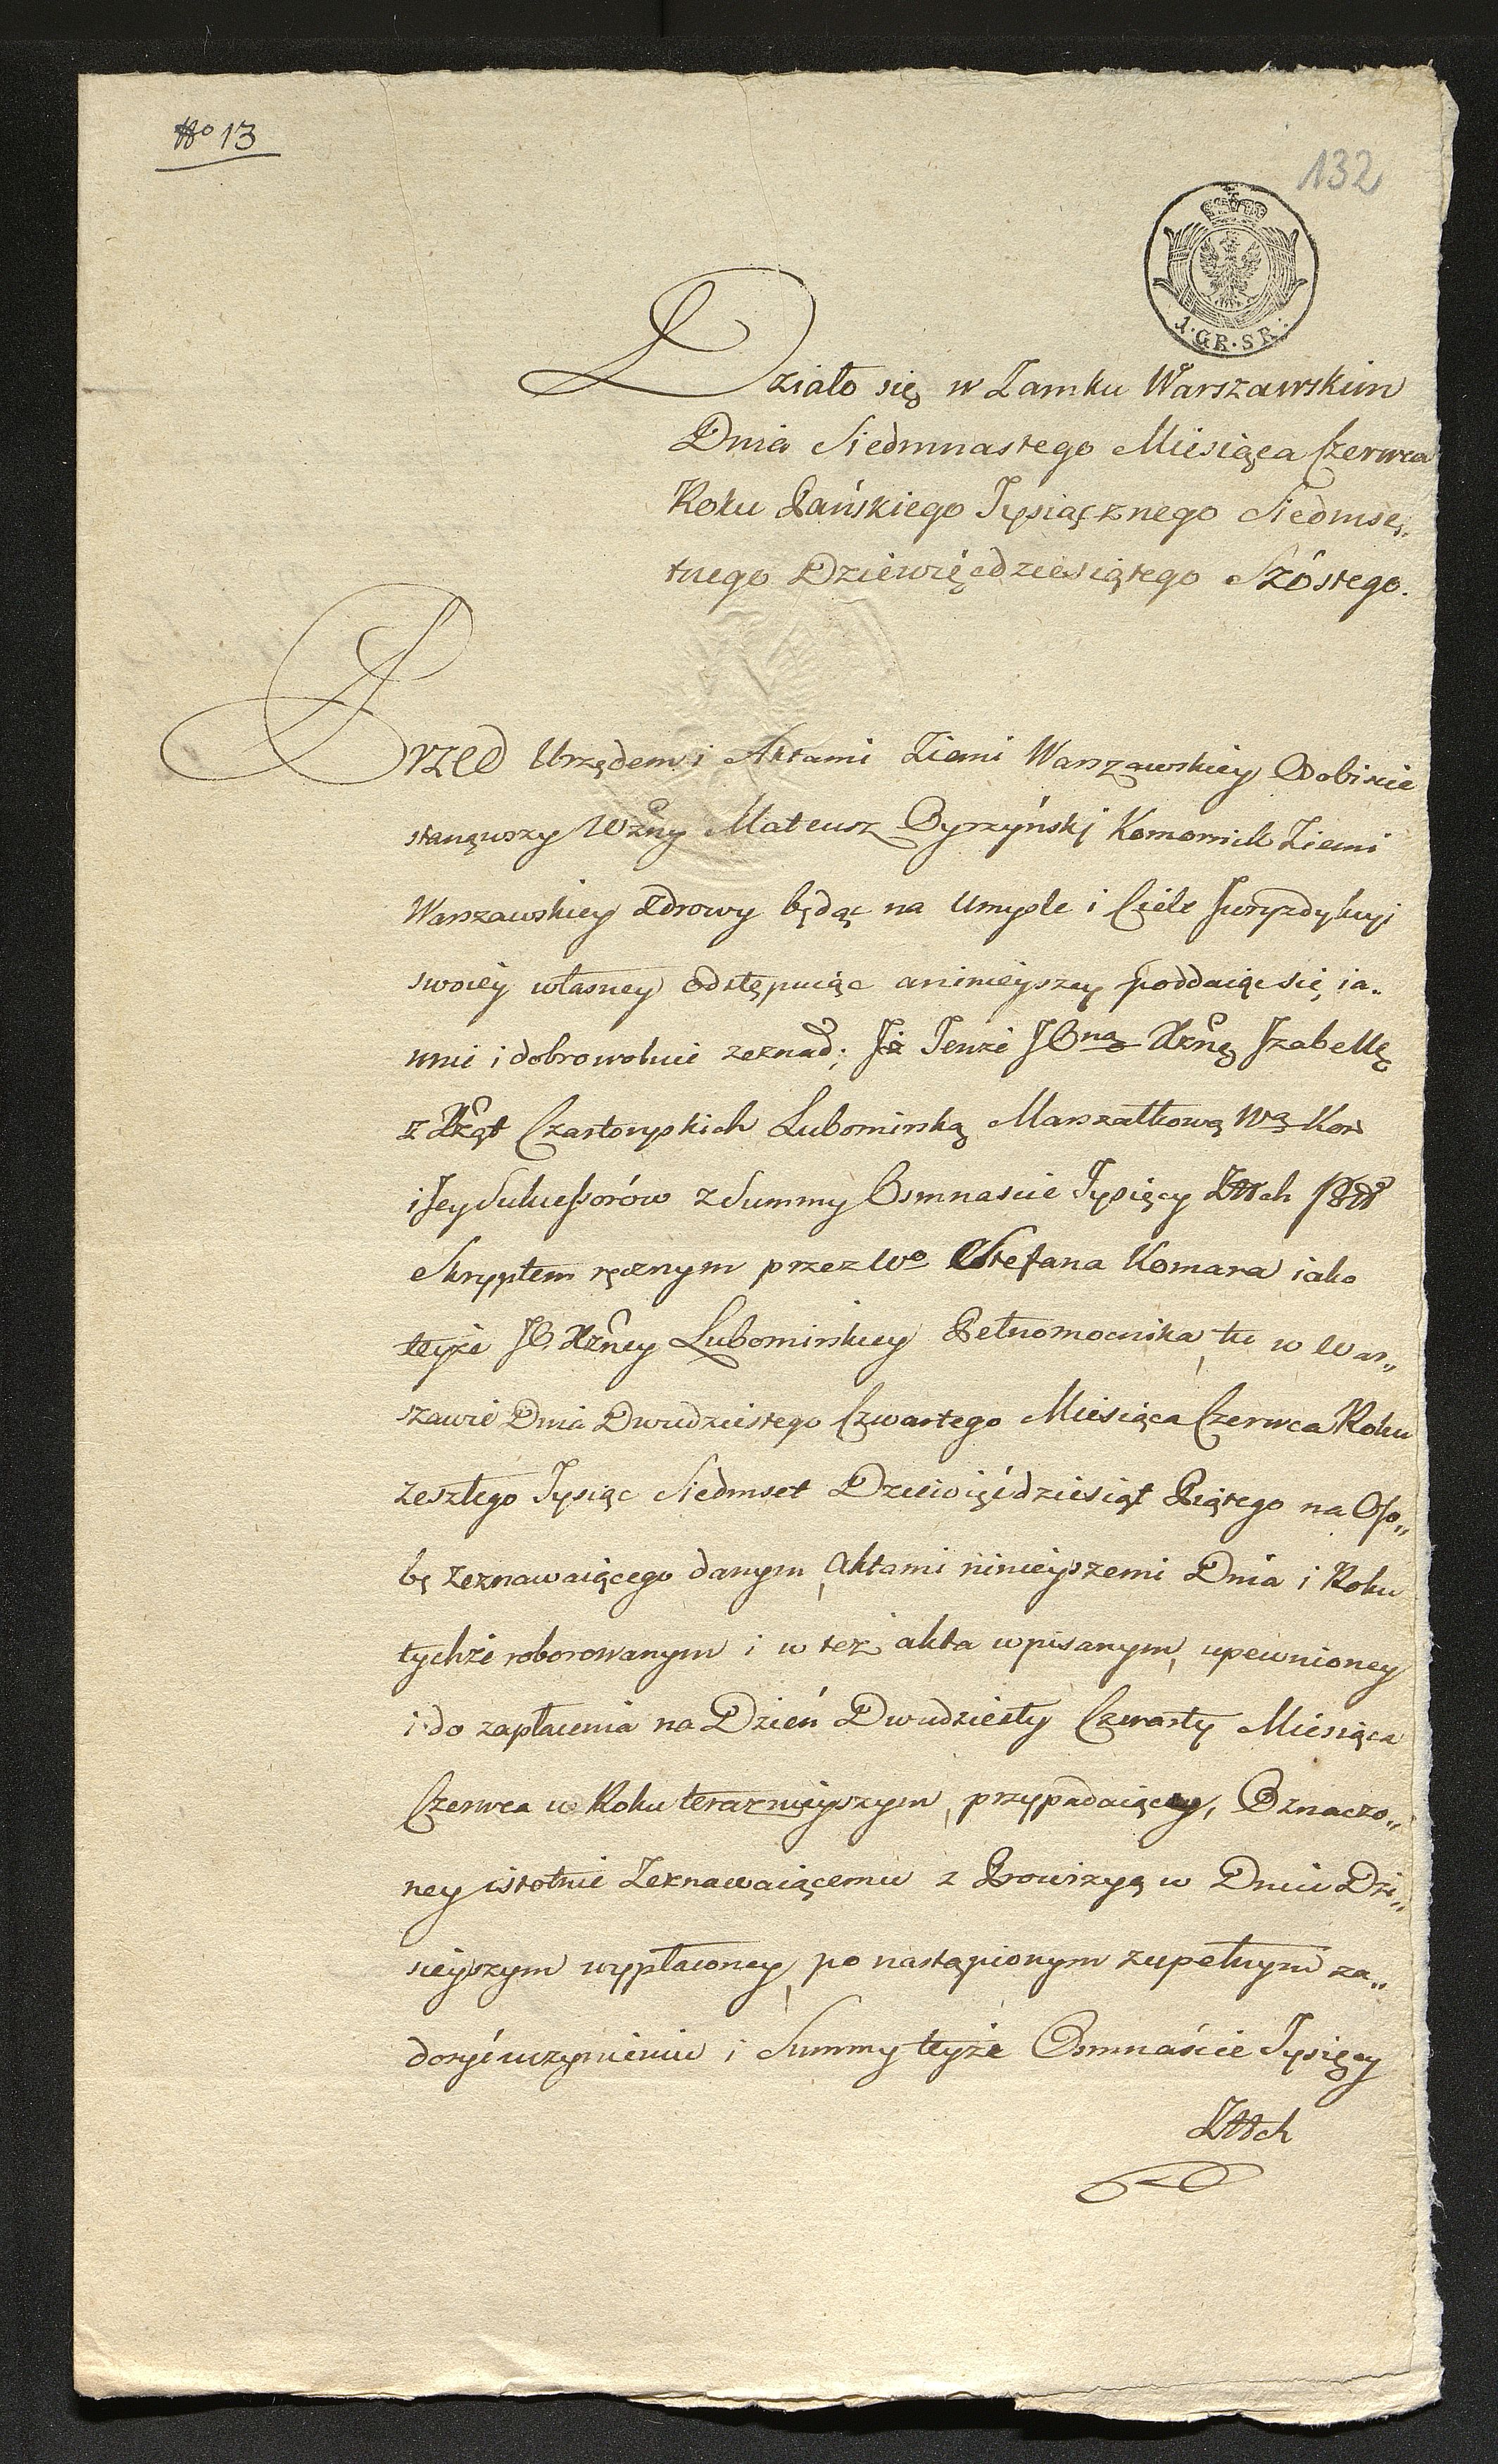 No 13
132
1·GR·SR·
Działo się w Zamku Warszawskim
Dnia Siedmnastego Miesiąca Czerwca
Roku Pańskiego Tysiącznego Siedmse„
tnego Dziewięćdziesiątego Szóstego.
Przed Urzędem i Aktami Ziemi Warszawskiey Osobiscie
stanąwszy Wżny Mateusz Byrzyński Komornik Ziemi
Warszawskiey Zdrowy będąc na Umysle i Ciele Juryzdykcyi
swoiey własney odstępuiąc a ninieyszey poddaiąc się ia„
wnie i dobrowolnie zeznał; Iż Tenże JO Xżnę Izabellę
z Xżąt Czartoryskich Lubomirską Marszałkową Wą Kor
i Jey Sukcessorów z Summy Osmnascie Tysięcy Zttch
Skryptem ręcznym przez Wo Stefana Komara iako
teyże JO Xżney Lubomirskiey Pełnomocnika, tu w War„
szawie Dnia Dwudziestego Czwartego Miesiąca Czerwca Roku
zeszłego Tysiąc Siedmset Dziewięćdziesiąt Piątego na Oso„
bę Zeznawaiącego danym, Aktami ninieyszemi Dnia i Roku
tychże roborowanym i w też akta wpisanym, upewnioney
i do zapłacenia na Dzień Dwudziesty Czwarty Miesiąca
Czerwca w Roku teraznieyszym, przypadaiącey, Oznaczo„
ney istotnie Zeznawaiącemu z Prowizyą w Dniu Dzi„
sieyszym wypłaconey, po nastąpionym zupełnym za„
dosyć uczynieniu i Summy teyże Osmnaście Tysięcy
Zttch